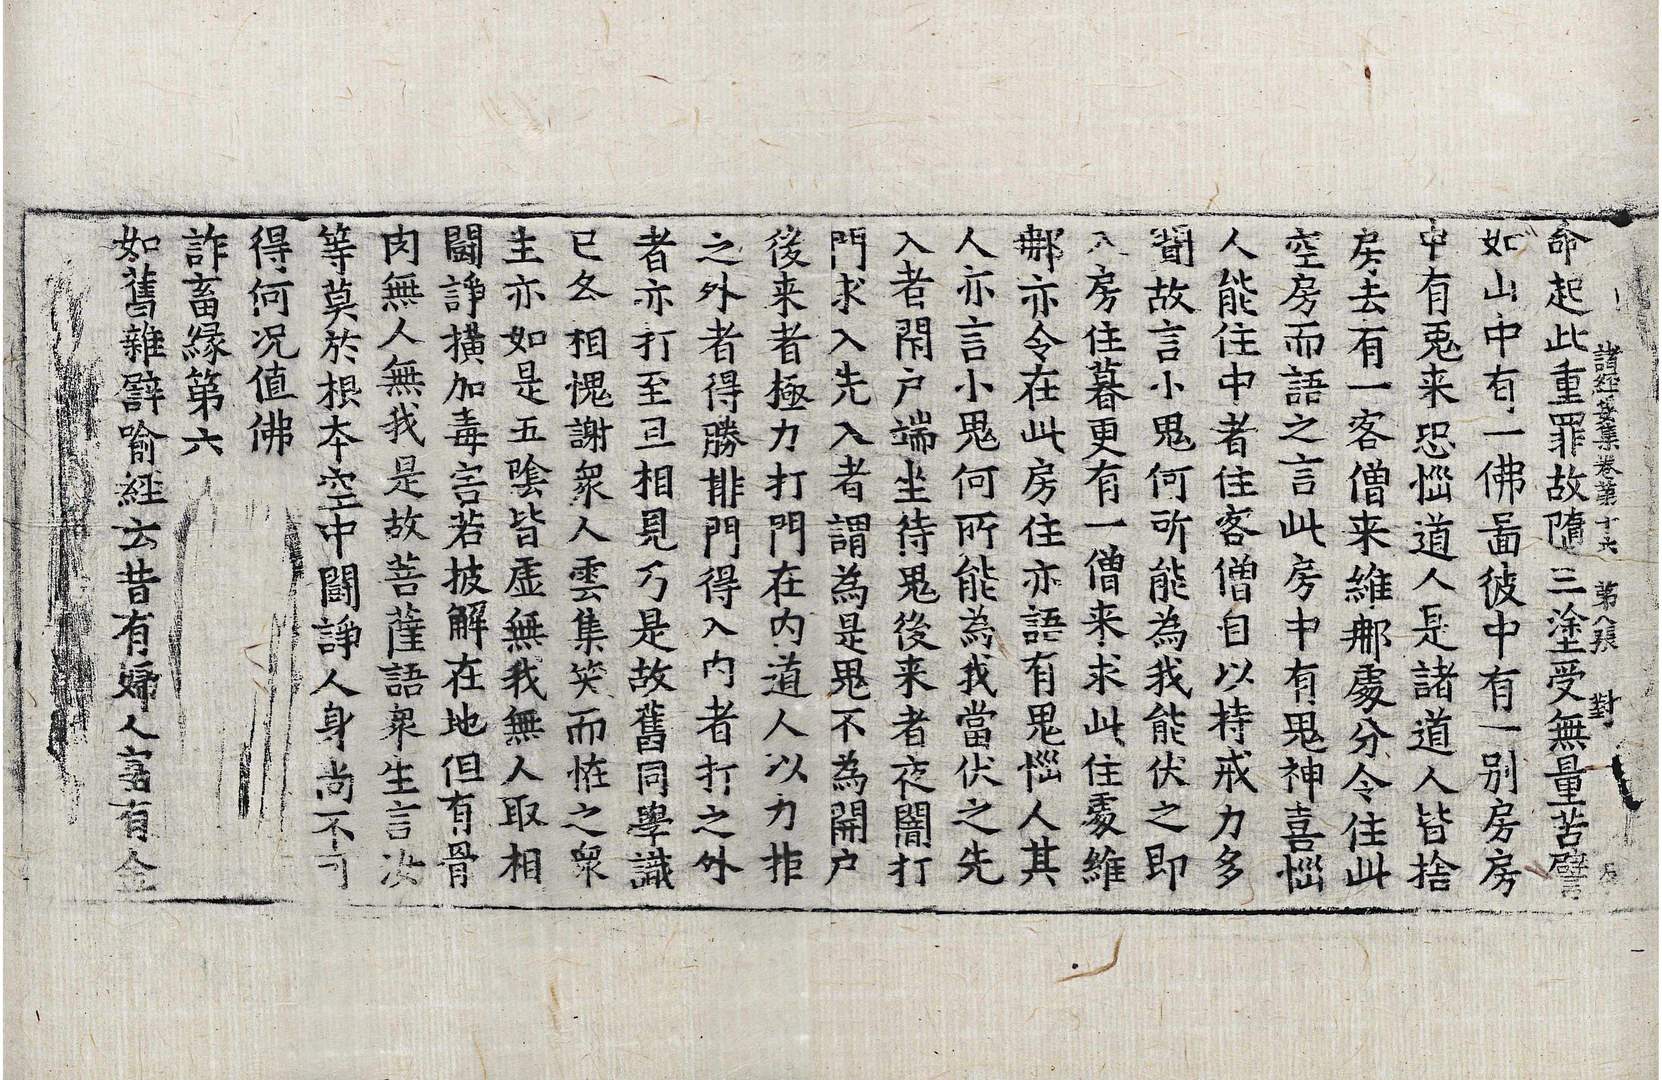 諸經要集卷第十六 第八張 對
命起此重罪故墮三塗受無量苦譬
如山中有一佛啚彼中有一別房房
中有鬼来恐惱道人是諸道人皆捨
房去有一客僧来維那處分令住此
空房而語之言此房中有鬼神喜惱
人能住中者住客僧自以持戒力多
聞故言小鬼何所能為我能伏之即
入房住暮更有一僧来求此住處維
那亦令在此房住亦語有鬼惱人其
人亦言小鬼何所能為我當伏之先
入者閇户端坐待鬼後来者夜闇打
門求入先入者謂為是鬼不為開户
後来者極力打門在內道人以力拒
之外者得勝排門得入內者打之外
者亦打至旦相見乃是故舊同學識
已各相愧謝衆人雲集笑而恠之衆
生亦如是五陰皆虛無我無人取相
闘諍橫加毒害若披解在地但有骨
肉無人無我是故菩薩語衆生言汝
等莫於根本空中闘諍人身尚不可
得何况值佛
詐畜緣第六
如舊雜譬喻經云昔有婦人富有金